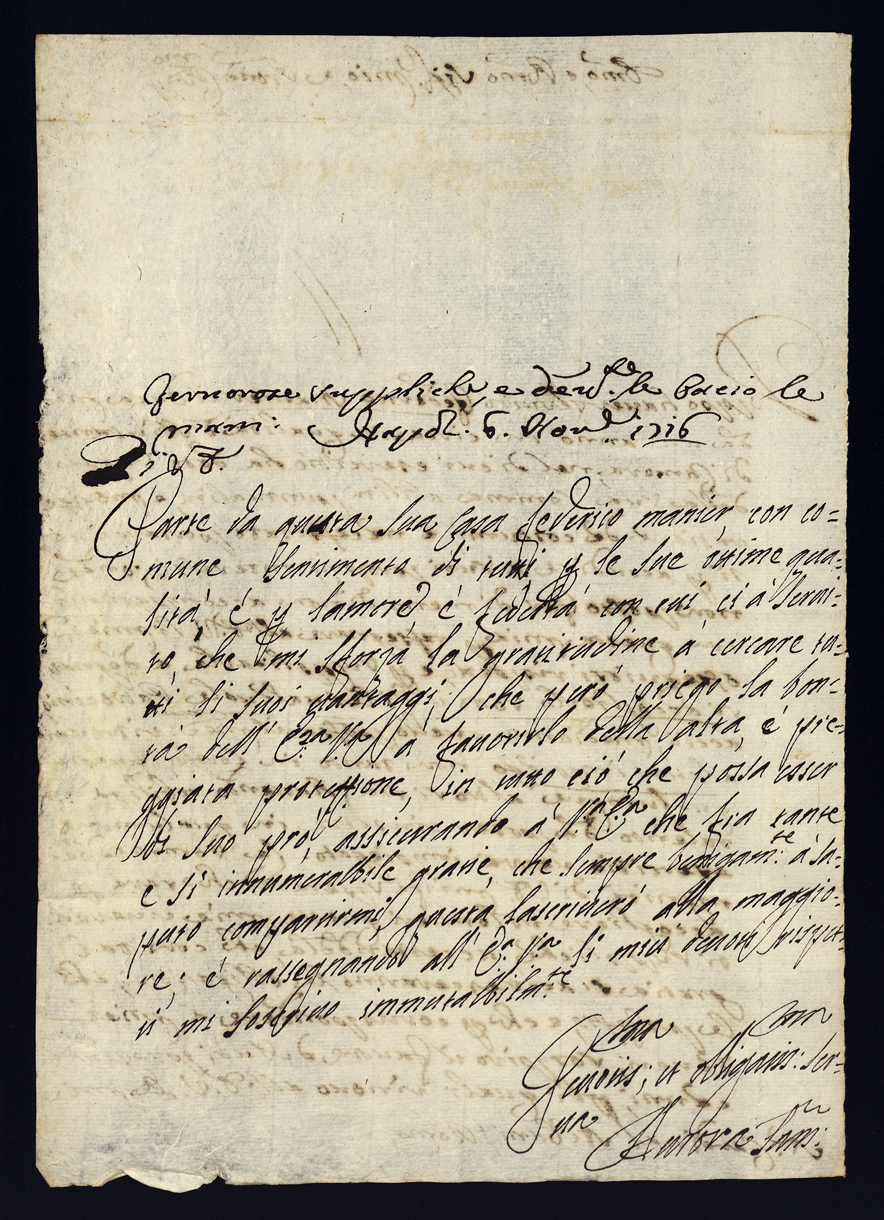 fervorose suppliche, e devte. le bacio le
mani: Napoli. 6. Novre. 1716
Di V. E.
Parte da questa sua Casa federico manier, con co=
mune sentimento di tutti p le sue ottime qua=
litá é p lamore é fedeltá con cui ci á servi=
to, che mi sforza la gratitudine á cercare tu=
tti li suoi vantaggi, che peró priego la bon=
tá dell' Eza. Va. á favorirlo della alta, é pre=
ggiata protezzione, in tutto ció che possa esser
di suo pró, assicurando á Va. Eza. che fra tante
e sí innumerabile grazie, che sempre benigamte. á sa=
puto compartirmi, questa lascriveró alla maggio=
re; é rassegnando all' Eza. Va. li miei devoti rispet=
ti mi soscrivo immutabilmte.
Devotis: et obligatis: ser=
va
Aurora San: